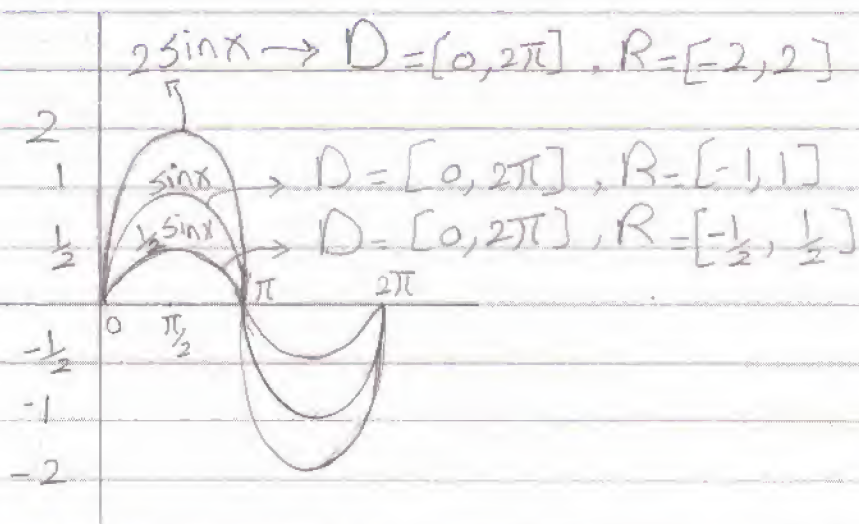 2 sinx → D = [0, 2π] , R = [-2, 2]
2
1 sinx → D = [0, 2π] , R = [-1, 1]
1/2 1/2 sinx → D = [0, 2π] , R = [-1/2, 1/2]
0 π/2 π 2π
-1/2
-1
-2